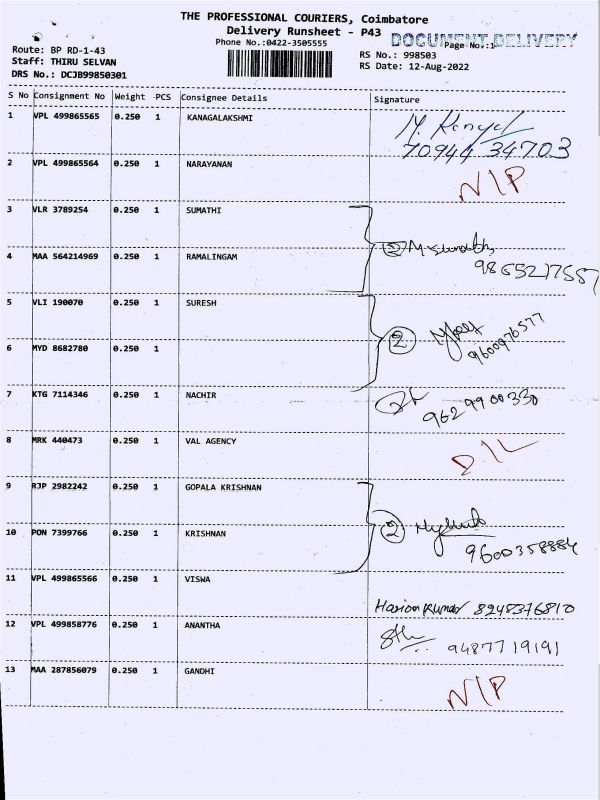 THE PROFESSIONAL COURIERS, Coimbatore
Delivery Runsheet - P43
DOCUMENT DELIVERY
Phone No.:0422-3505555
Page No.:1
Route: BP RD-1-43
RS No.: 998503
Staff: THIRU SELVAN
RS Date: 12-Aug-2022
DRS No.: DCJB99850301
S No Consignment No Weight PCS Consignee Details Signature
1 VPL 499865565 0.250 1 KANAGALAKSHMI
70944 34703
2 VPL 499865564 0.250 1 NARAYANAN N/P
3 VLR 3789254 0.250 1 SUMATHI
4 MAA 564214969 0.250 1 RAMALINGAM
② M Sumathi
9865217557
5 VLI 190070 0.250 1 SURESH
② 9600976577
6 MYD 8682780 0.250 1
7 KTG 7114346 0.250 1 NACHIR
962 99 00330
8 MRK 440473 0.250 1 VAL AGENCY D/L
9 RJP 2982242 0.250 1 GOPALA KRISHNAN
10 PON 7399766 0.250 1 KRISHNAN
② 9600358884
11 VPL 499865566 0.250 1 VISWA
Kumar 8248376810
12 VPL 499858776 0.250 1 ANANTHA
9487719191
13 MAA 287856079 0.250 1 GANDHI N/P